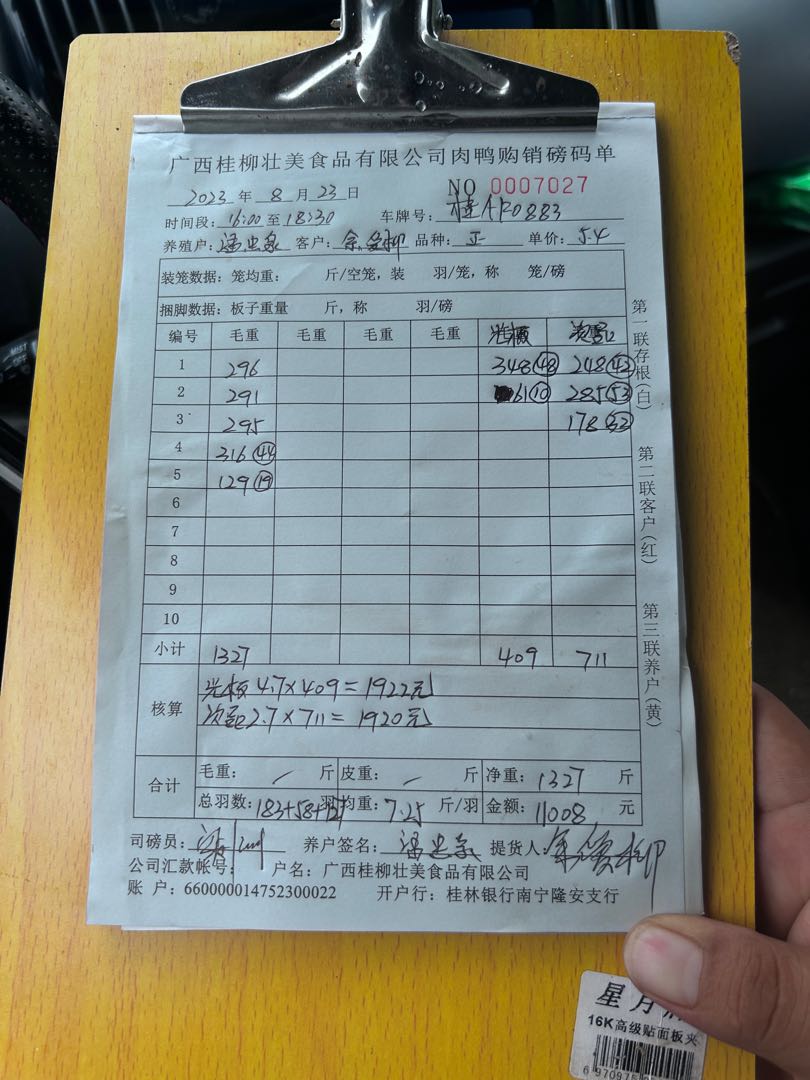 广西桂柳壮美食品有限公司肉鸭购销磅码单
2023 年 8 月 23 日 NO 0007027
时间段: 16:00 至 18:30 车牌号: 桂AR0883
养殖户: 客户: 品种: 正 单价: 5.4
装笼数据: 笼均重: 斤/空笼, 装 羽/笼, 称 笼/磅
捆脚数据: 板子重量 斤, 称 羽/磅
编号 毛重 毛重 毛重 毛重 光板 次品
1 296 348 48 248 42
2 291 61 10 285 53
3 295 178 32
4 316 44
5 129 19
6
7
8
9
10
小计 1327 409 711
核算 光板 4.7×409=1922元
次品 2.7×711=1920元
合计 毛重: / 斤 皮重: / 斤 净重: 1327 斤
总羽数: 183+58+127 羽 均重: 7.25 斤/羽 金额: 11008 元
司磅员: 养户签名: 提货人:
公司汇款帐号: 户名: 广西桂柳壮美食品有限公司
账 户: 660000014752300022 开户行: 桂林银行南宁隆安支行
第一联存根(白)
第二联客户(红)
第三联养户(黄)
星月
16K高级贴面板夹
6 970975